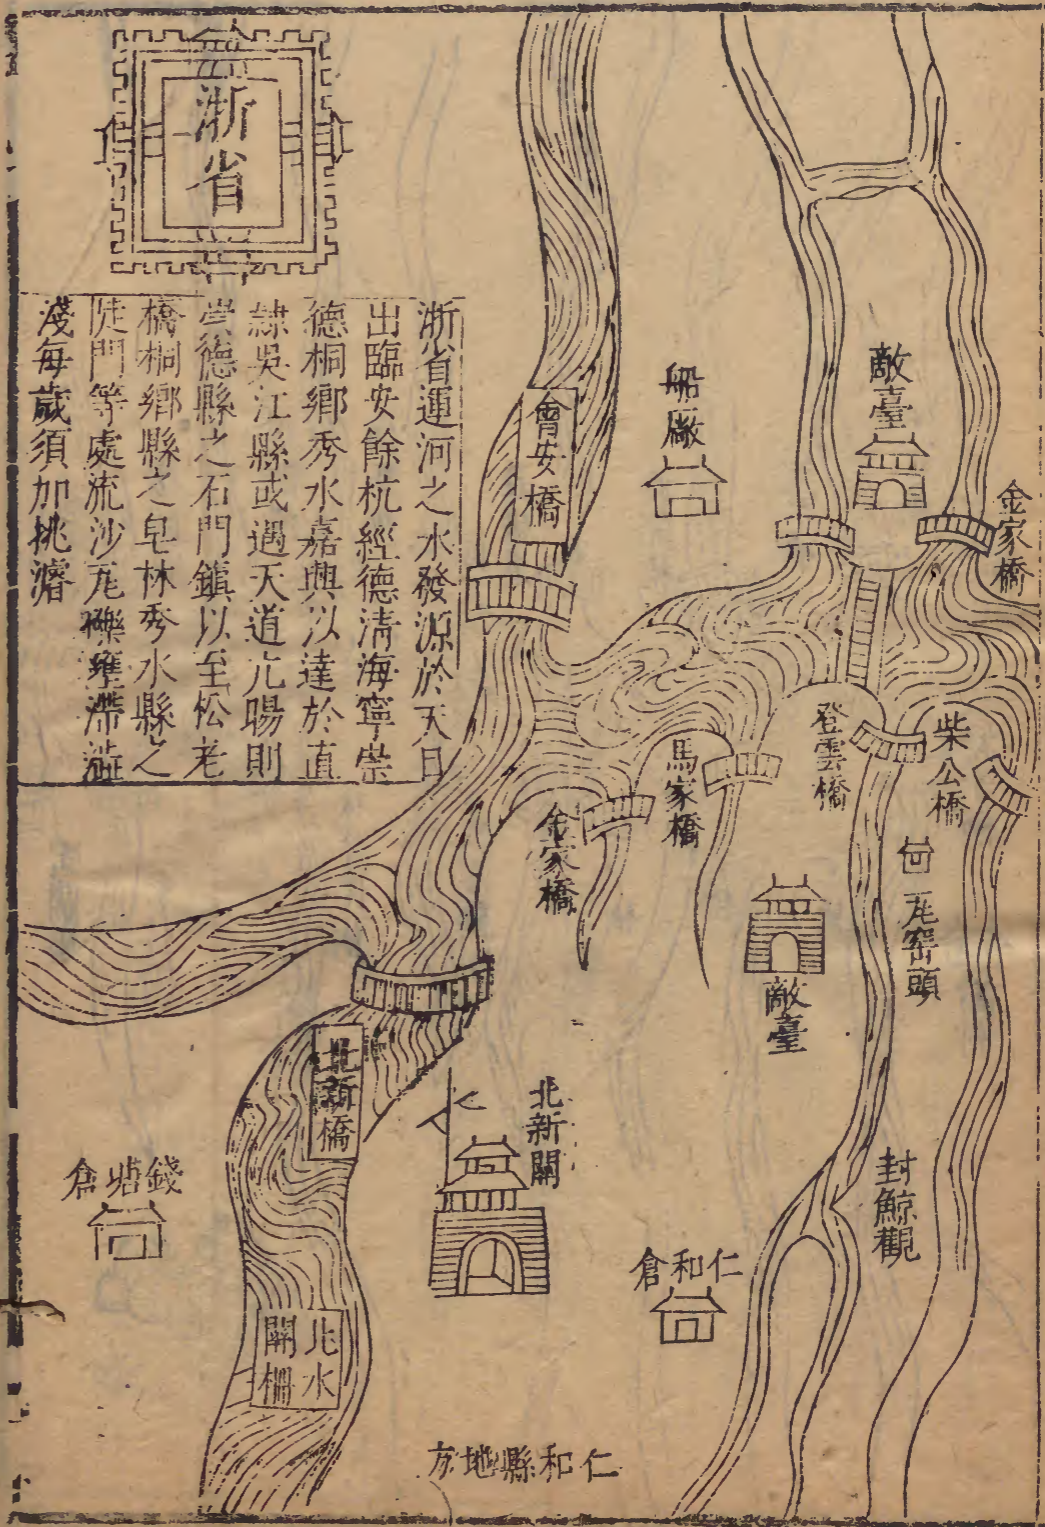 浙省
浙省運河之水發源於天目
出臨安餘杭經德清海寧崇
德桐鄉秀水嘉興以達於直
隸吳江縣或遇天道亢暘則
崇德縣之石門鎮以至松老
橋桐鄉縣之皂林秀水縣之
陡門等處流沙瓦礫壅滯淤
淺每歲須加挑濬
會安橋
船廠
敵臺
金家橋
登雲橋
柴公橋
馬家橋
金家橋
瓦窑頭
敵臺
北新橋
北新關
封鯨觀
錢塘倉
仁和倉
北水
關柵
仁和縣地方